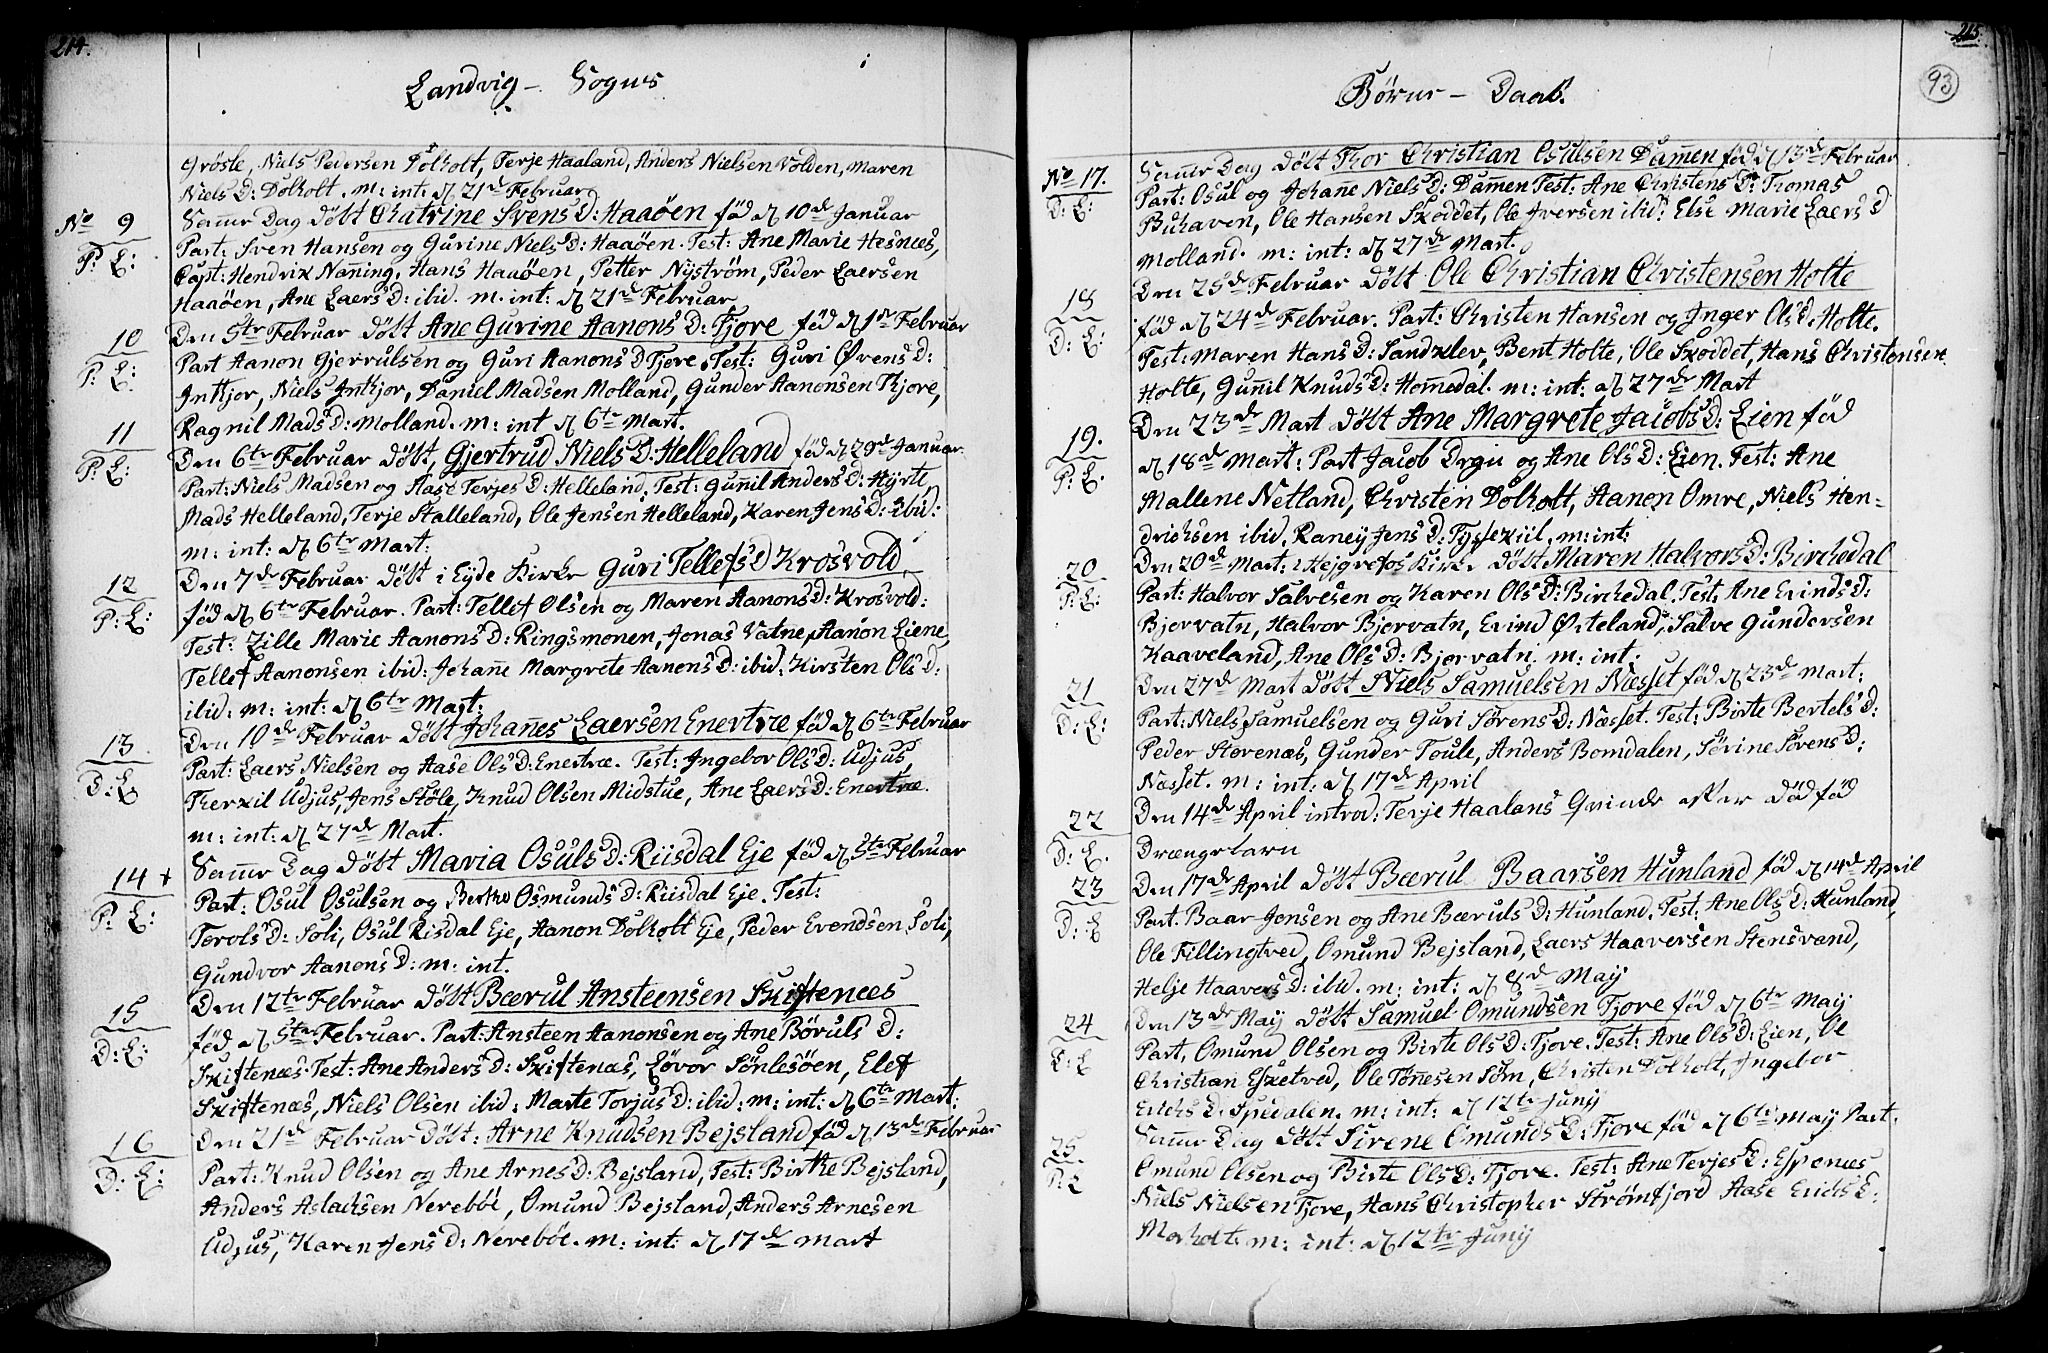 214.
Landvig – Sogns
Grösle, Niels Pedersen Dölholt, Terje Haaland, Anders Nielsen Volden, Maren
Niels D: Dolholt. m: int d 21de Februar
No 9
P: L:
Samme Dag döbt Chatrine Svens D: Haaöen föd d 10de Januar
Part: Sven Hansen og Gurine Niels D: Haaöen. Test: Ane Marie Hesnees,
Capt: Hendrix Nanning, Hans Haaöen, Petter Nyström, Peder Laersen
Haaöen, Ane Laers D: ibid. m. int: d 21de Februar
10
P: L:
Den 5te Februar döbt Ane Gurine Aanons D: Fjore föd d 1ste Februar
Part Aanon Gjerrulsen og Guri Aanons D Fjore. Test: Guri Örens D:
Inkjor, Niels Inkjor, Daniel Madsen Molland, Gunder Aanonsen Fjore,
Ragnil Mads D: Molland. m: int d 6te Mart.
11
P: L:
Den 6te Februar döbt, Gjertrud Niels D: Helleland föd d 29de Januar
Part: Niels Madsen og Aase Terjes D: Helleland. Test: Gunnil Anders D: Hyrte,
Mads Helleland, Terje Stalleland, Ole Jensen Helleland, Karen Jens D: ibid:
m: int: d 6te Mart:
12
P: L:
Den 7de Februar döbt i Eyde Kirke Guri Tellefs D Krosvold
föd d 6te Februar. Part: Tellef Olsen og Maren Aanons D: Krosvold:
Test: Zille Marie Aanons D: Ringsmonen, Jonas Vatne, Aanon Liene
Tellef Aanonsen ibid: Johanne Margrete Aanons D: ibid. Kirsten Ols D:
ibid: m: int: d 6te Mart:
13
D: L
Den 10de Februar döbt Johannes Laersen Enertræ föd d 6te Februar
Part: Laers Nielsen og Aase Ols D: Enertræ. Test: Ingebor Ols D: Udjus,
Therxil Udjus, Jens Stöle, Knud Olsen Midstue, Ane Laers D: Enertræ.
m: int: d 27de Mart.
14 +
P: L:
Samme Dag döbt Maria Osuls D: Riisdal Eje föd d 5te Februar
Part: Osul Osulsen og Berthe Osmunds D: Riisdal Eje. Test:
Torols D: Soli, Osul Risdal Eje, Aanon Dolholt Eje, Peder Evendsen Soli,
Gundvor Aanons D: m: int.
15
D: L:
Den 12te Februar döbt Bærul Ansteensen Skiftenæs
föd d 5te Februar. Part: Ansteen Aanonsen og Ane Böruls D:
Skiftenæs. Test: Ane Anders D: Skiftenæs, Lövor Sönlesöen, Elef
Skiftenæs, Niels Olsen ibid: Marte Torjus D: ibid: m: int: d 6te Mart:
16
D: L:
Den 21de Februar Döbt: Arne Knudsen Bejsland föd d 13de Februar
Part: Knud Olsen og Ane Arnes D: Bejsland, Test: Birthe Bejsland,
Anders Aslachsen Nereböe, Omund Bejsland, Anders Arnesen
Udjus, Karen Jens D: Nereböe. m: int: d 17de Mart
215.
93
Börns – Daab.
No 17.
D: L:
Samme Dag Döbt Thor Christian Osulsen Dammen föd d 13de Februar
Part: Osul og Johane Niels D: Dammen Test: Ane Christens D: Thomas
Buhaven, Ole Hansen Skoddet, Ole Iversen ibid: Else Marie Laers D
Molland. m: int: d 27de Mart.
18
D: L:
Den 25de Februar döbt Ole Christian Christensen Holte
föd d 24de Februar. Part: Christen Hansen og Inger Ols D: Holte.
Test: Maren Hans D: Sandklev, Bent Holte, Ole Skoddet, Hans Christensen
Holte, Gunnil Knuds D: Hommedal. m: int: d 27de Mart
19.
P: L:
Den 23de Mart döbt Ane Margrete Jacobs D: Eien föd
d 18de Mart: Part Jacob Dreu og Ane Ols D: Eien. Test: Ane
Mallene Netland, Christen Dolholt, Aanon Omre, Niels Hen-
drichsen ibid, Raney Jens D: Tyssexiil. m: int:
20
P: L:
Den 20de Mart: i Hejgrefos Kirke döbt Maren Halvors D: Birchedal
Part: Halvor Salvesen og Karen Ols D: Birchedal. Test: Ane Evinds D:
Bjorvatn, Halvor Bjorvatn, Evind Örteland, Salve Gundersen
Kaaveland, Ane Ols D: Bjorvatn. m: int:
21
D: L:
Den 27de Mart döbt Niels Samuelsen Næsset föd d 23de Mart:
Part: Niels Samuelsen og Guri Sörens D: Næsset. Test: Birte Bertels D:
Peder Storenæs, Gunder Toule, Anders Bomdalen, Sörine Sörens D:
Næsset. m: int: d 17de April
22
D: L.
Den 14de April introd: Terje Haalans Qvinde efter död föd
Drængebarn
23
D: L
Den 17de April döbt Bærul Baarsen Hunland föd d 14de April
Part. Baar Jensen og Ane Bæruls D: Hunland. Test: Ane Ols D: Hunland,
Ole Fillingtved, Omund Bejsland, Laers Haaversen Stensvand,
Helje Haavers D: ibid. m: int: d 8de May
24
L: L
Den 13de May döbt Samuel Omundsen Fjore föd d 6te May
Part. Omund Olsen og Birte Ols D: Fjore. Test: Ane Ols D: Eien, Ole
Christian Esketved, Ole Tönnesen Söm, Christen Dolholt, Ingebor
Erichs D: Spedalen. m: int: d 12te Junij
25.
P: L
Samme Dag döbt Sirene Omunds D: Fjore föd d 6te May Part.
Omund Olsen og Birte Ols D: Fjore. Test: Ane Terjes D: Espenæs
Niels Nielsen Fjore, Hans Christopher Strömfjord Aase Erichs D:
Morholt. m: int: d 12te Junij